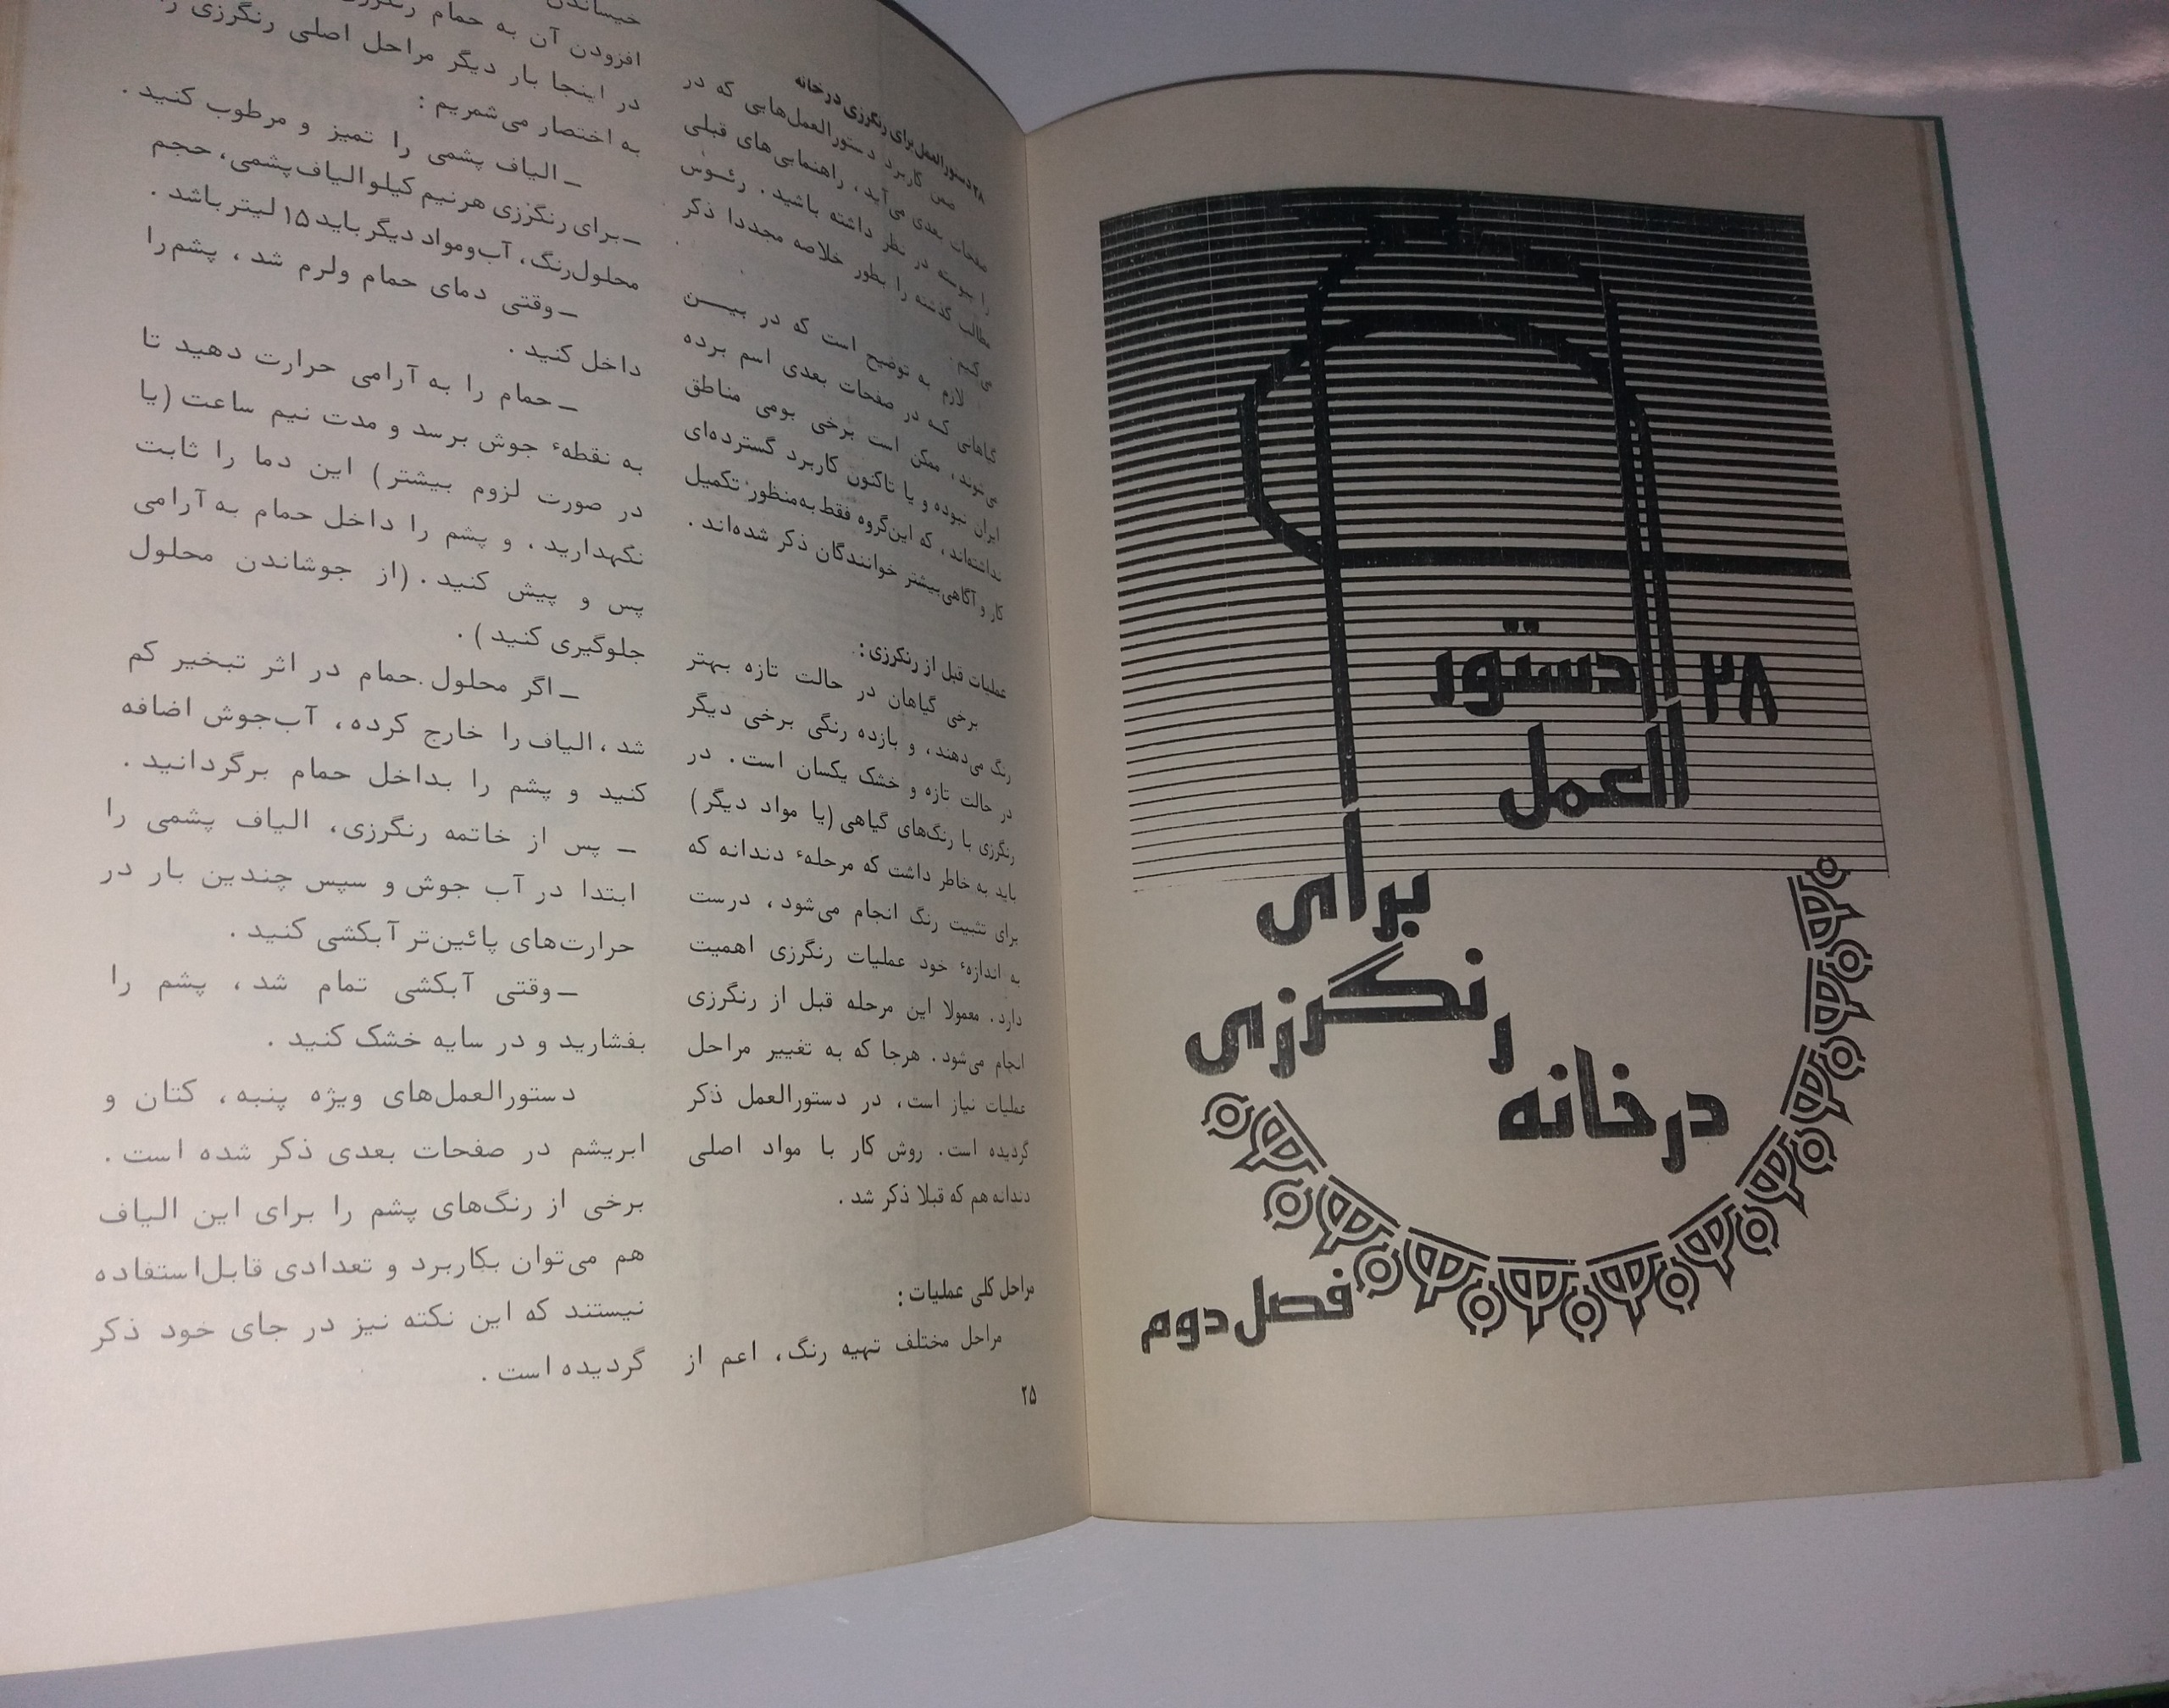 ۲۸ دستور
العمل
برای
رنگرزی
درخانه
فصل دوم
۲۸ دستورالعمل برای رنگرزی درخانه
ضمن کاربرد دستورالعمل‌هایی که در
صفحات بعدی می‌آید، راهنمایی‌های قبلی
را پیوسته در نظر داشته باشید. رئوس
مطالب گذشته را بطور خلاصه مجددا ذکر
می‌کنیم.
لازم به توضیح است که در بیـــن
گیاهانی کـه در صفحات بعدی اسم برده
می‌شوند، ممکن است برخی بومی مناطق
ایران نبوده و یا تاکنون کاربرد گسترده‌ای
نداشته‌اند، که این‌گروه فقط به‌منظور تکمیل
کار و آگاهی‌بیشتر خوانندگان ذکر شده‌اند.
عملیات قبل از رنگرزی:
برخی گیاهان در حالت تازه بهتر
رنگ می‌دهند، و بازده رنگی برخی دیگر
در حالت تازه و خشک یکسان است. در
رنگرزی با رنگ‌های گیاهی (یا مواد دیگر)
باید به خاطر داشت که مرحلهٔ دندانه که
برای تثبیت رنگ انجام می‌شود، درست
به اندازهٔ خود عملیات رنگرزی اهمیت
دارد. معمولا این مرحله قبل از رنگرزی
انجام می‌شود. هرجا که به تغییر مراحل
عملیات نیاز است، در دستورالعمل ذکر
گردیده است. روش کار با مواد اصلی
دندانه هم که قبلا ذکر شد.
مراحل کلی عملیات:
مراحل مختلف تهیه رنگ، اعم از
خیساندن
افزودن آن به حمام
در اینجا بار دیگر مراحل اصلی رنگرزی را
به اختصار می‌شمریم:
ــ الیاف پشمی را تمیز و مرطوب کنید.
ــ برای رنگرزی هرنیم کیلو الیاف‌پشمی، حجم
محلول‌رنگ، آب‌ومواد دیگر باید ۱۵ لیتر باشد.
ــ وقتی دمای حمام ولرم شد، پشم‌را
داخل کنید.
ــ حمام را به آرامی حرارت دهید تا
به نقطهٔ جوش برسد و مدت نیم ساعت (یا
در صورت لزوم بیشتر) این دما را ثابت
نگهدارید، و پشم را داخل حمام به آرامی
پس و پیش کنید. (از جوشاندن محلول
جلوگیری کنید).
ــ اگر محلول حمام در اثر تبخیر کم
شد، الیاف را خارج کرده، آب‌جوش اضافه
کنید و پشم را بداخل حمام برگردانید.
ــ پس از خاتمه رنگرزی، الیاف پشمی را
ابتدا در آب جوش و سپس چندین بار در
حرارت‌های پائین‌تر آبکشی کنید.
ــ وقتی آبکشی تمام شد، پشم را
بفشارید و در سایه خشک کنید.
دستورالعمل‌های ویژه پنبه، کتان و
ابریشم در صفحات بعدی ذکر شده است.
برخی از رنگ‌های پشم را برای این الیاف
هم می‌توان بکاربرد و تعدادی قابل‌استفاده
نیستند که این نکته نیز در جای خود ذکر
گردیده است.
۲۵